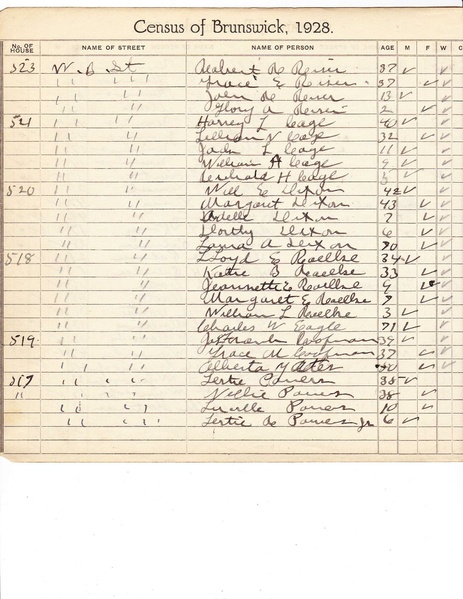 Census of Brunswick, 1928.
No. OF HOUSE NAME OF STREET NAME OF PERSON AGE M F W C
523 W. B. St R 37 ✓ ✓
" " Grace E 37 ✓ ✓
" " John R 13 ✓ ✓
" " A 2 ✓ ✓
521 " " Harvey L Cage 40 ✓ ✓
" " Lillian V Cage 32 ✓ ✓
" " Jack L Cage 11 ✓ ✓
" " William H Cage 9 ✓ ✓
" " H Cage ✓ ✓
520 " " Will E Dixon 42 ✓ ✓
" " Margaret Dixon 43 ✓ ✓
" " Dixon 7 ✓ ✓
" " Dorthy Dixon 6 ✓ ✓
" " Laura A Dixon 70 ✓ ✓
518 " " Lloyd E Roelke 34 ✓ ✓
" " Katie B Roelke 33 ✓ ✓
" " Jeannette E Roelke 9 ✓ ✓
" " Margaret E Roelke 7 ✓ ✓
" " William L Roelke 3 ✓ ✓
" " Charles W Eagle 71 ✓ ✓
519 " " 39 ✓ ✓
" " Grace M 37 ✓ ✓
" " Alberta ✓ ✓
517 " " Powers 38 ✓ ✓
" " " Nellie Powers 38 ✓ ✓
" " Lucille Powers 10 ✓ ✓
" " R Powers Jr 6 ✓ ✓